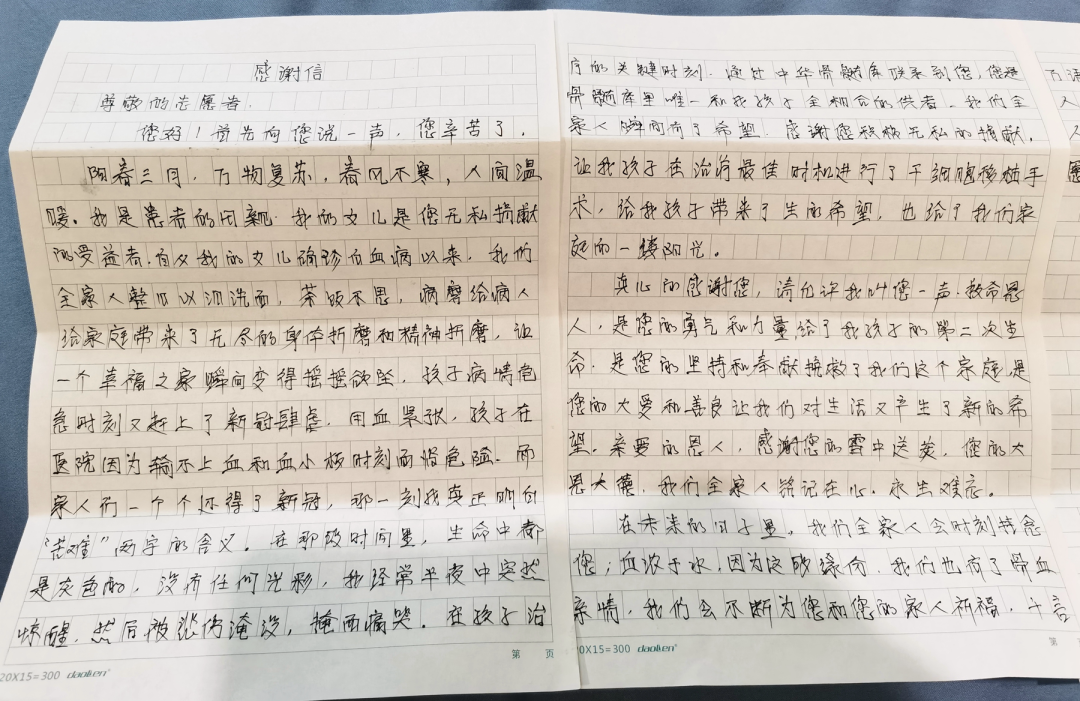 感谢信
尊敬的志愿者.
您好！首先向您说一声，您辛苦了。
阳春三月，万物复苏，春风不寒，人间温
暖。我是患者的母亲. 我的女儿是您无私捐献
的受益者.自从我的女儿确诊白血病以来，我们
全家人整日以泪洗面，茶饭不思，病魔给病人
给家庭带来了无尽的身体折磨和精神折磨，让
一个幸福之家瞬间变得摇摇欲坠，孩子病情危
急时刻又赶上了新冠肆虐，用血紧张，孩子在
医院因为输不上血和血小板时刻面临危险. 而
家人们一个个还得了新冠，那一刻我真正明白
“苦难”两字的含义。在那段时间里，生命中都
是灰色的，没有任何光彩，我经常半夜中突然
惊醒，然后被悲伤淹没，掩面痛哭。在孩子治
第 页
20X15=300 daolien®
疗的关键时刻. 通过中华骨髓库联系到您，您是
骨髓库里唯一和我孩子全相合的供者，我们全
家人瞬间有了希望. 感谢您积极无私的捐献，
让我孩子在治疗最佳时机进行了干细胞移植手
术，给我孩子带来了生的希望，也给了我们家
庭的一缕阳光。
真心的感谢您，请允许我叫您一声.救命恩
人，是您的勇气和力量给了我孩子的第二次生
命，是您的坚持和奉献挽救了我们这个家庭，是
您的大爱和善良让我们对生活又产生了新的希
望。亲爱的恩人，感谢您的雪中送炭，您的大
恩大德，我们全家人铭记在心，永生难忘。
在未来的日子里，我们全家人会时刻挂念
您；血浓于水，因为这段缘份，我们也有了骨血
亲情，我们会不断为您和您的家人祈福，千言
20X15=300 daolien®
第
万语
人